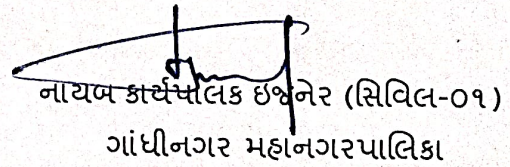 નાયબ કાર્યપાલક ઇજનેર (સિવિલ-૦૧)
ગાંધીનગર મહાનગરપાલિકા